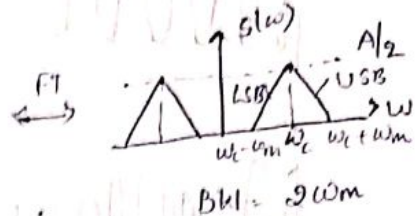 S(ω)
A/2
FT
LSB
USB
ω
ωc-ωm ωc ωc+ωm
BW = 2ωm